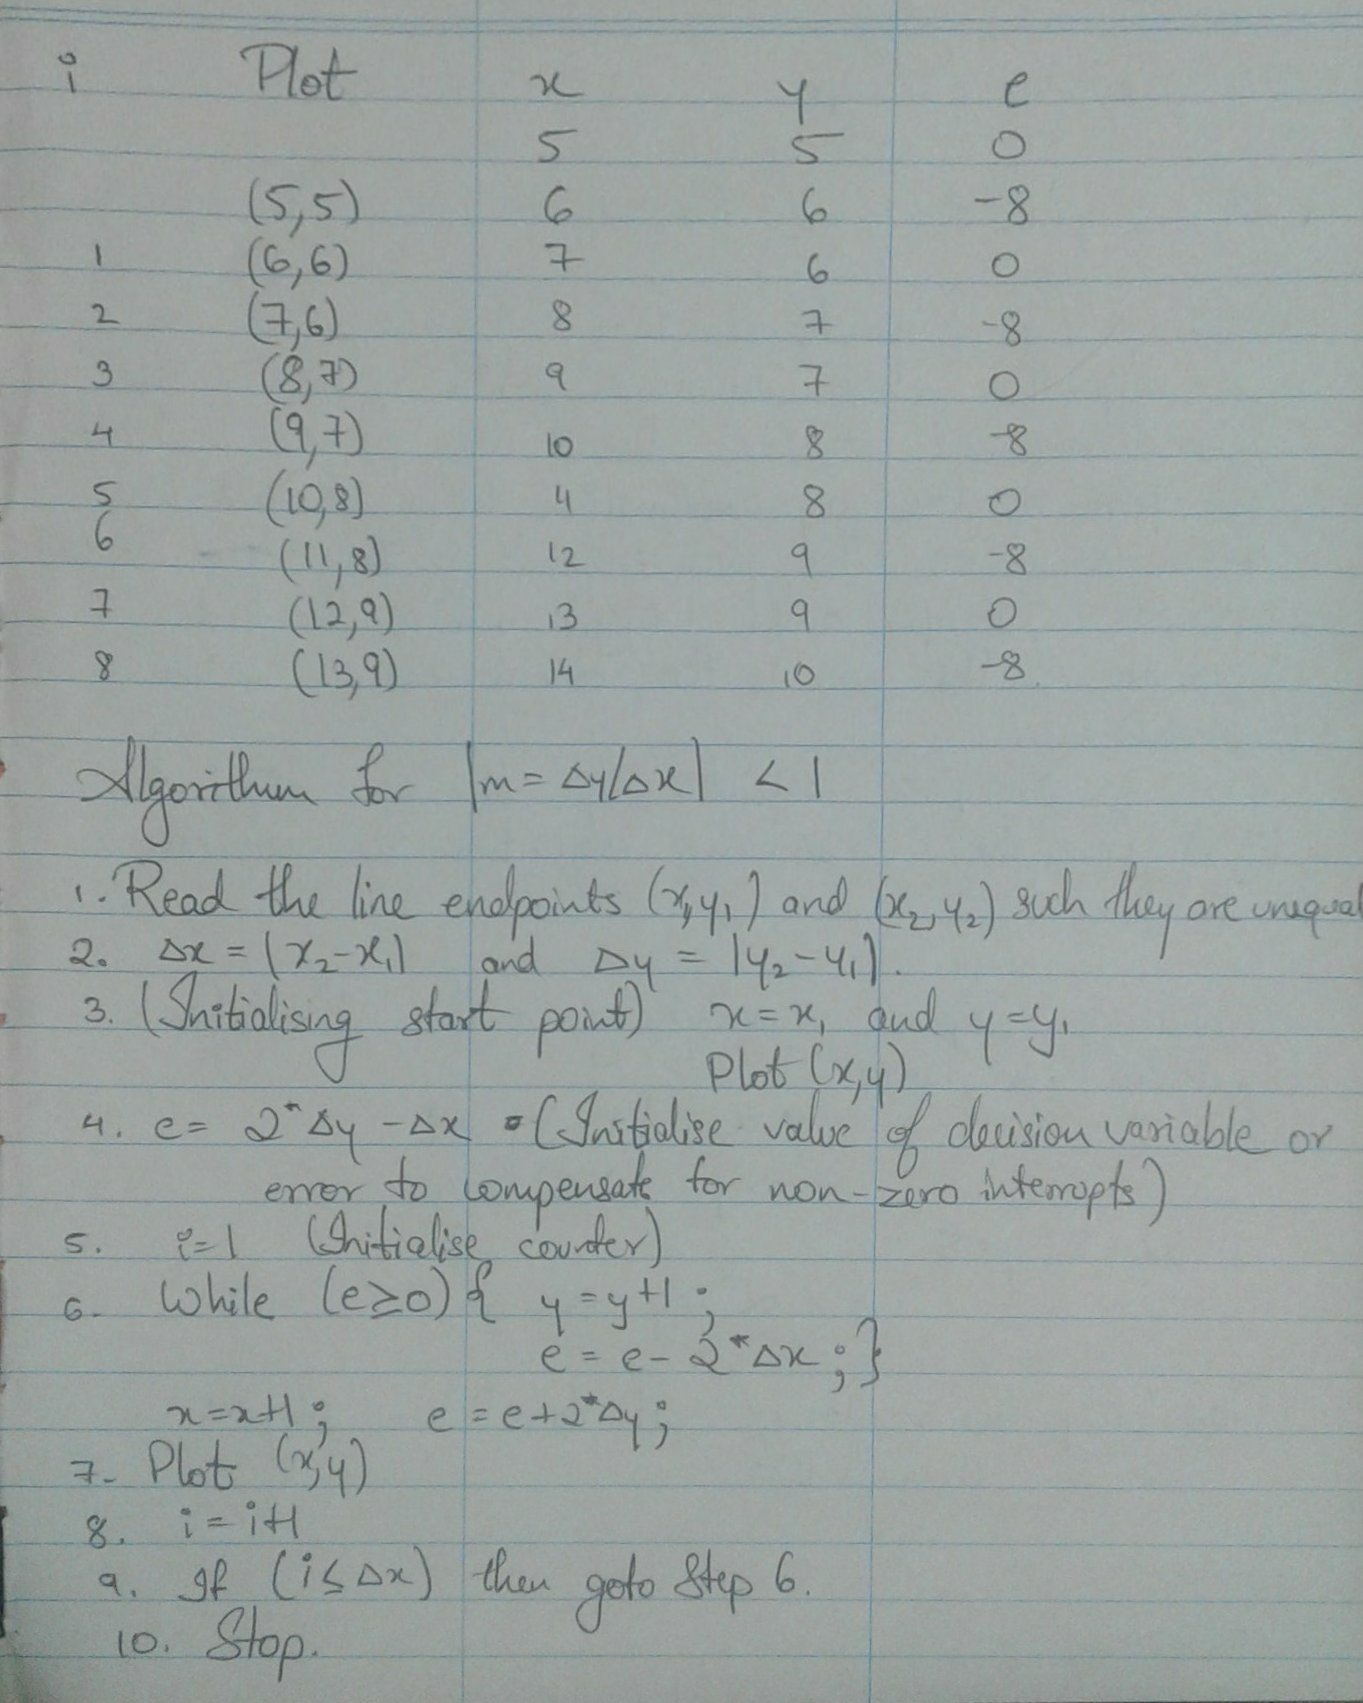 i Plot x y e
5 5 0
(5,5) 6 6 -8
1 (6,6) 7 6 0
2 (7,6) 8 7 -8
3 (8,7) 9 7 0
4 (9,7) 10 8 -8
5 (10,8) 11 8 0
6 (11,8) 12 9 -8
7 (12,9) 13 9 0
8 (13,9) 14 10 -8
Algorithm for |m = Δy/Δx| < 1
1. Read the line endpoints (x₁,y₁) and (x₂,y₂) such they are unequal
2. Δx = |x₂-x₁| and Δy = |y₂-y₁|.
3. (Initialising start point) x=x₁ and y=y₁
Plot (x,y)
4. e= 2*Δy -Δx (Initialise value of decision variable or
error to compensate for non-zero interrupts)
5. i=1 (Initialise counter)
6. While (e≥0){ y=y+1;
e = e- 2*Δx;}
x=x+1; e=e+2*Δy;
7. Plot (x,y)
8. i=i+1
9. If (i≤Δx) then goto Step 6.
10. Stop.